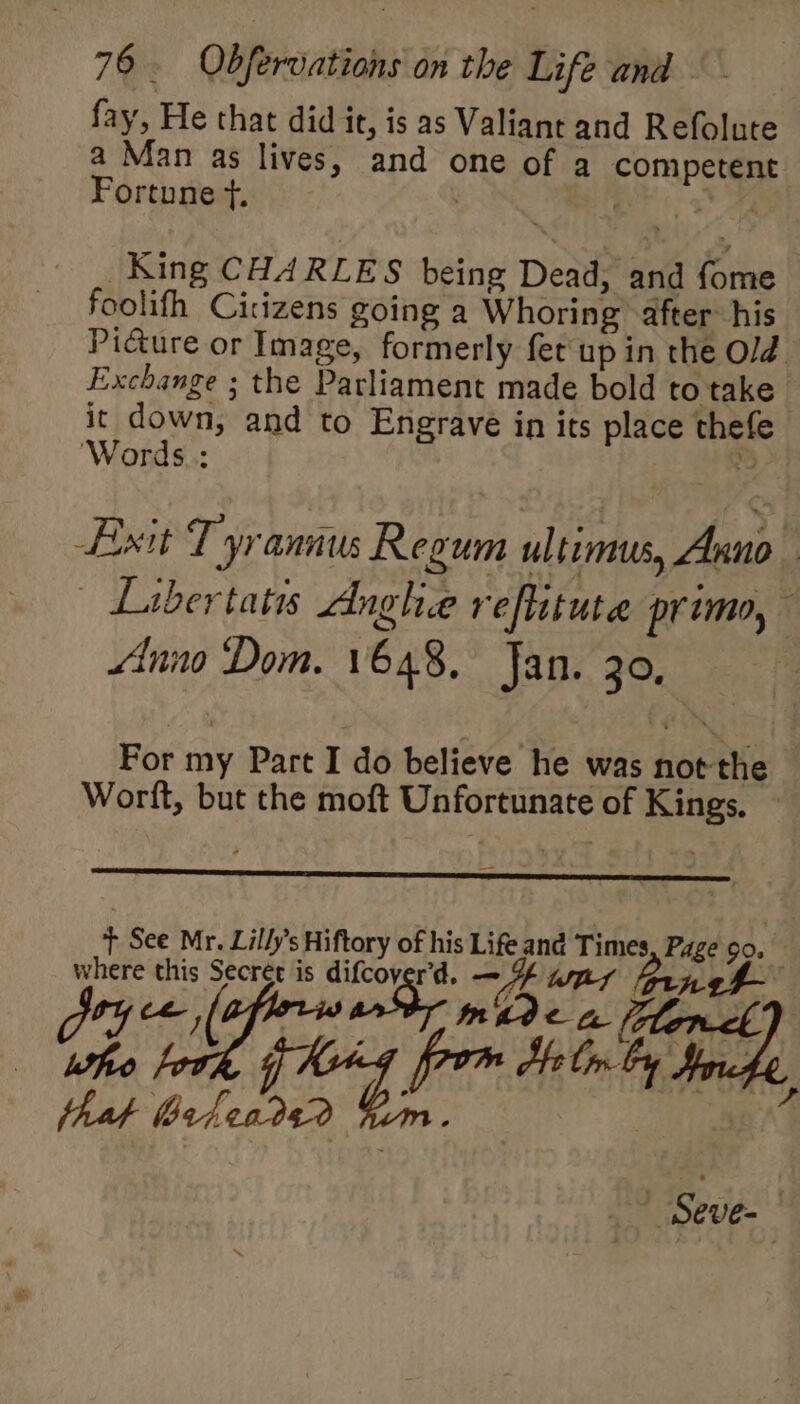 76. Obſervations on the Life and
ſay, He that did it, is as Valiant and Reſolute
a Man as lives, and one of a competent
Fortune †.
King CHARLES being Dead, and ſome
fooliſh Citizens going a Whoring after his
Picture or Image, formerly ſet up in the Old
Exchange ; the Parliament made bold to take
it down, and to Engrave in its place theſe
Words :
Exit Tyrannus Regum ultimus, Anno
Libertatis Angliæ reſtitutæ primo,
Anno Dom. 1648. Jan. 30.
For my Part I do believe he was not the
Worſt, but the moſt Unfortunate of Kings.
† See Mr. Lilly's Hiſtory of his Life and Times, Page 90.
where this Secret is diſcover'd. — It was Cornet
Joyce, (afterwards made a Colonel)
who took ye King from Holmby House,
that Beheaded him.
Seve-